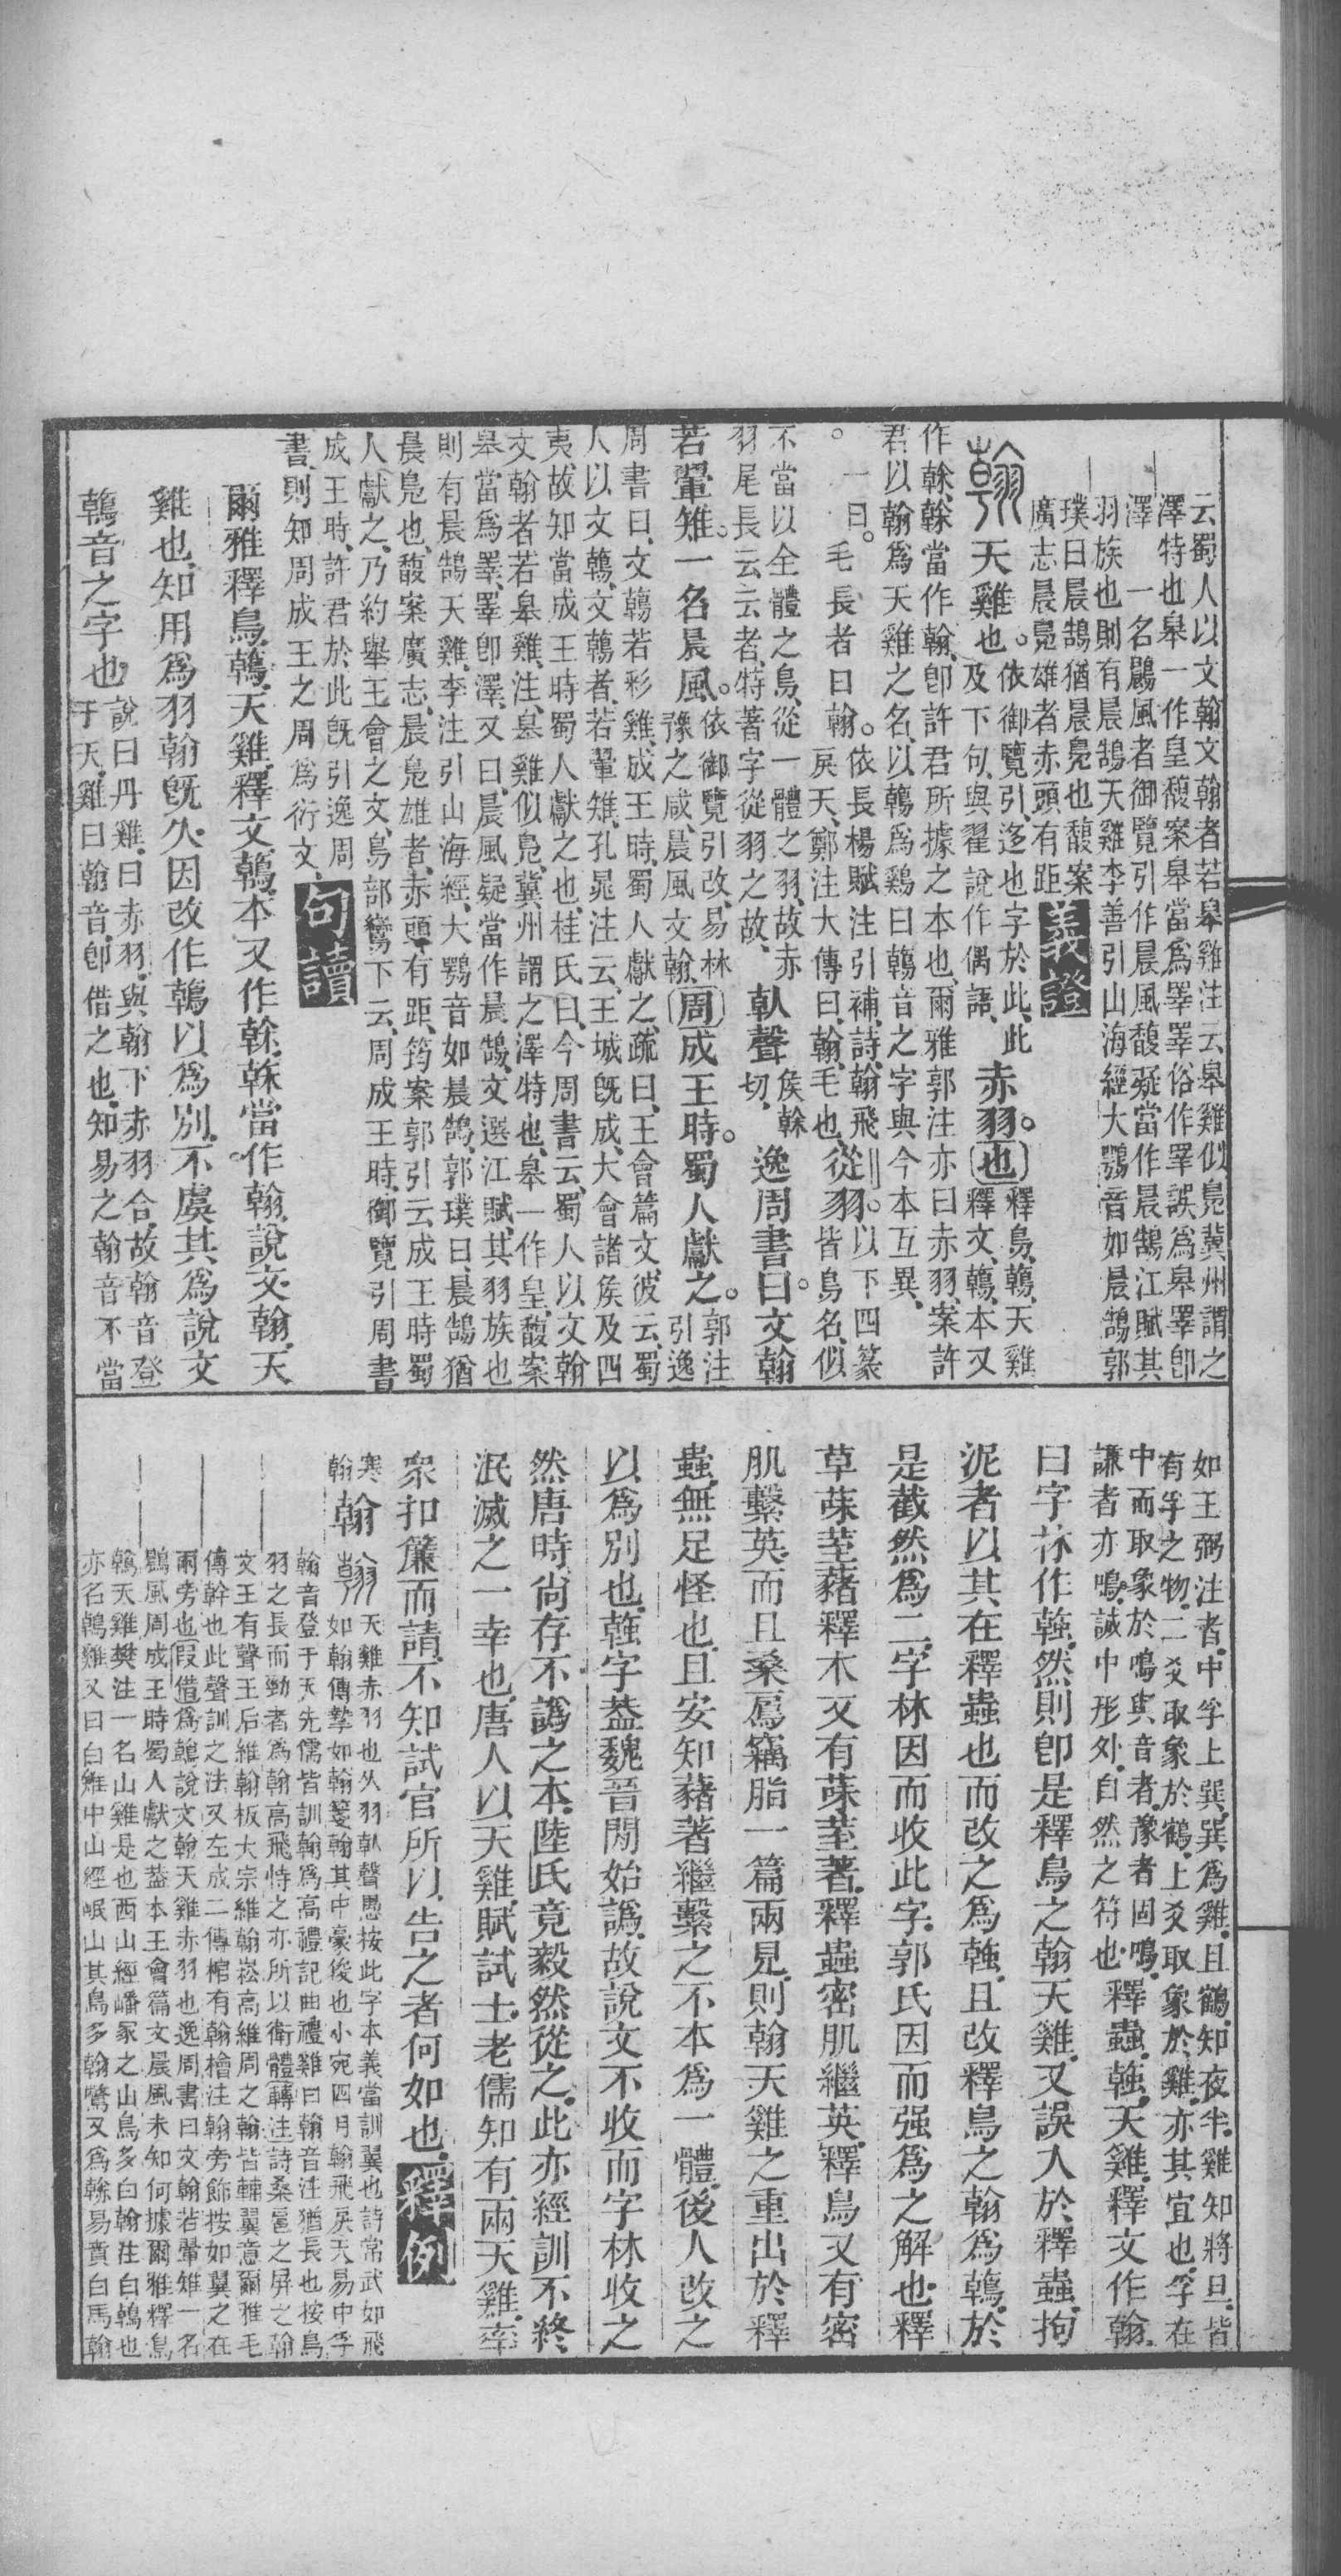 云蜀人以文翰文翰者若皐雞注云皐雞似鳧冀州謂之
澤特也皐一作皇馥案皐當爲睪睪俗作睪誤爲皐睪卽
澤　一名鷐風者御覽引作晨風馥疑當作晨鵠江賦其
羽族也則有晨鵠天雞李善引山海經大鶚音如晨鵠郭
璞曰晨鵠猶晨鳧也馥案
廣志晨鳧雄者赤頭有距義證
翰天雞也。依御覽引迻也字於此、此
及下句、與翟說作偶語、赤羽。也釋鳥、鶾、天雞
釋文、鶾、本又
作榦、榦當作翰、卽許君所據之本也、爾雅郭注亦曰赤羽、案許
君以翰爲天雞之名、以鶾爲雞曰鶾音之字、與今本互異、
。一曰。毛長者曰翰。依長楊賦注引補、詩、翰飛
戾天、鄭注大傳曰、翰、毛也、從羽。以下四篆
皆鳥名、似
不當以全體之鳥、從一體之羽、故赤
羽尾長云云者、特著字從羽之故、倝聲矦榦
切、逸周書曰。文翰
若翬雉。一名晨風。依御覽引改、易林
豫之咸、晨風文翰、周成王時。蜀人獻之。郭注
引逸
周書曰、文鶾若彩雞、成王時、蜀人獻之、疏曰、王會篇文、彼云、蜀
人以文鶾、文鶾者、若翬雉、孔晁注云、王城旣成、大會諸矦及四
夷、故知當成王時、蜀人獻之也、桂氏曰、今周書云、蜀人以文翰
文翰者、若皐雞、注、皐雞似鳧、冀州謂之澤特也、皐一作皇、馥案
皐當爲睪、睪卽澤、又曰、晨風、疑當作晨鵠、文選江賦、其羽族也
則有晨鵠天雞、李注引山海經、大鶚音如晨鵠、郭璞曰、晨鵠猶
晨鳧也、馥案廣志、晨鳧雄者、赤頭有距、筠案郭引云成王時蜀
人獻之、乃約舉王會之文、鳥部鷩下云、周成王時、御覽引周書
成王時、許君於此旣引逸周
書、則知周成王之周爲衍文、句讀
爾雅釋鳥、鶾、天雞、釋文、鶾、本又作榦、榦當作翰、說文翰、天
雞也、知用爲羽翰旣久、因改作鶾以爲別、不虞其爲說文
鶾音之字也說曰丹雞、曰赤羽、與翰下赤羽合、故翰音登
于天、雞曰翰音、卽借之也、知易之翰音不當
如王弼注者、中孚上巽、巽爲雞、且鶴、知夜半、雞知將旦、皆
有孚之物、二爻取象於鶴、上爻取象於雞、亦其宜也、孚在
中而取象於鳴與音者、豫者固鳴、
謙者亦鳴、誠中形外、自然之符也釋蟲、螒、天雞、釋文作翰、
曰字林作螒、然則卽是釋鳥之翰天雞、又誤入於釋蟲、拘
泥者以其在釋蟲也而改之爲螒、且改釋鳥之翰爲鶾、於
是截然爲二、字林因而收此字、郭氏因而强爲之解也、釋
草菋荎藸釋木又有菋荎著、釋蟲密肌繼英、釋鳥又有密
肌繫英、而且桑鳸竊脂一篇兩見、則翰天雞之重出於釋
蟲、無足怪也、且安知藸著繼繫之不本爲一體、後人改之
以爲別也、螒字葢魏晉閒始譌、故說文不收而字林收之
然唐時尙存不譌之本、陸氏竟毅然從之、此亦經訓不終
泯滅之一幸也、唐人以天雞賦試士、老儒知有兩天雞、率
衆扣簾而請、不知試官所以告之者何如也、釋例
寒
翰翰翰天雞赤羽也从羽倝聲愚按此字本義當訓翼也詩常武如飛
如翰傳摯如翰箋翰其中豪俊也小宛四月翰飛戾天易中孚
翰音登于天先儒皆訓翰爲高禮記曲禮雞曰翰音注猶長也按鳥
羽之長而勁者爲翰高飛恃之亦所以衛體轉注詩桑扈之屏之翰
文王有聲王后維翰板大宗維翰崧高維周之翰皆輔翼意爾雅毛
傳榦也此聲訓之法又左成二傳棺有翰檜注翰旁飾按如翼之在
兩旁也叚借爲鶾說文翰天雞赤羽也逸周書曰文翰若翬雉一名
鷐風周成王時蜀人獻之葢本王會篇文晨風未知何據爾雅釋鳥
鶾天雞樊注一名山雞是也西山經嶓冢之山鳥多白翰注白鶾也
亦名鶾雉又曰白雉中山經岷山其鳥多翰鷩又爲榦易賁白馬翰